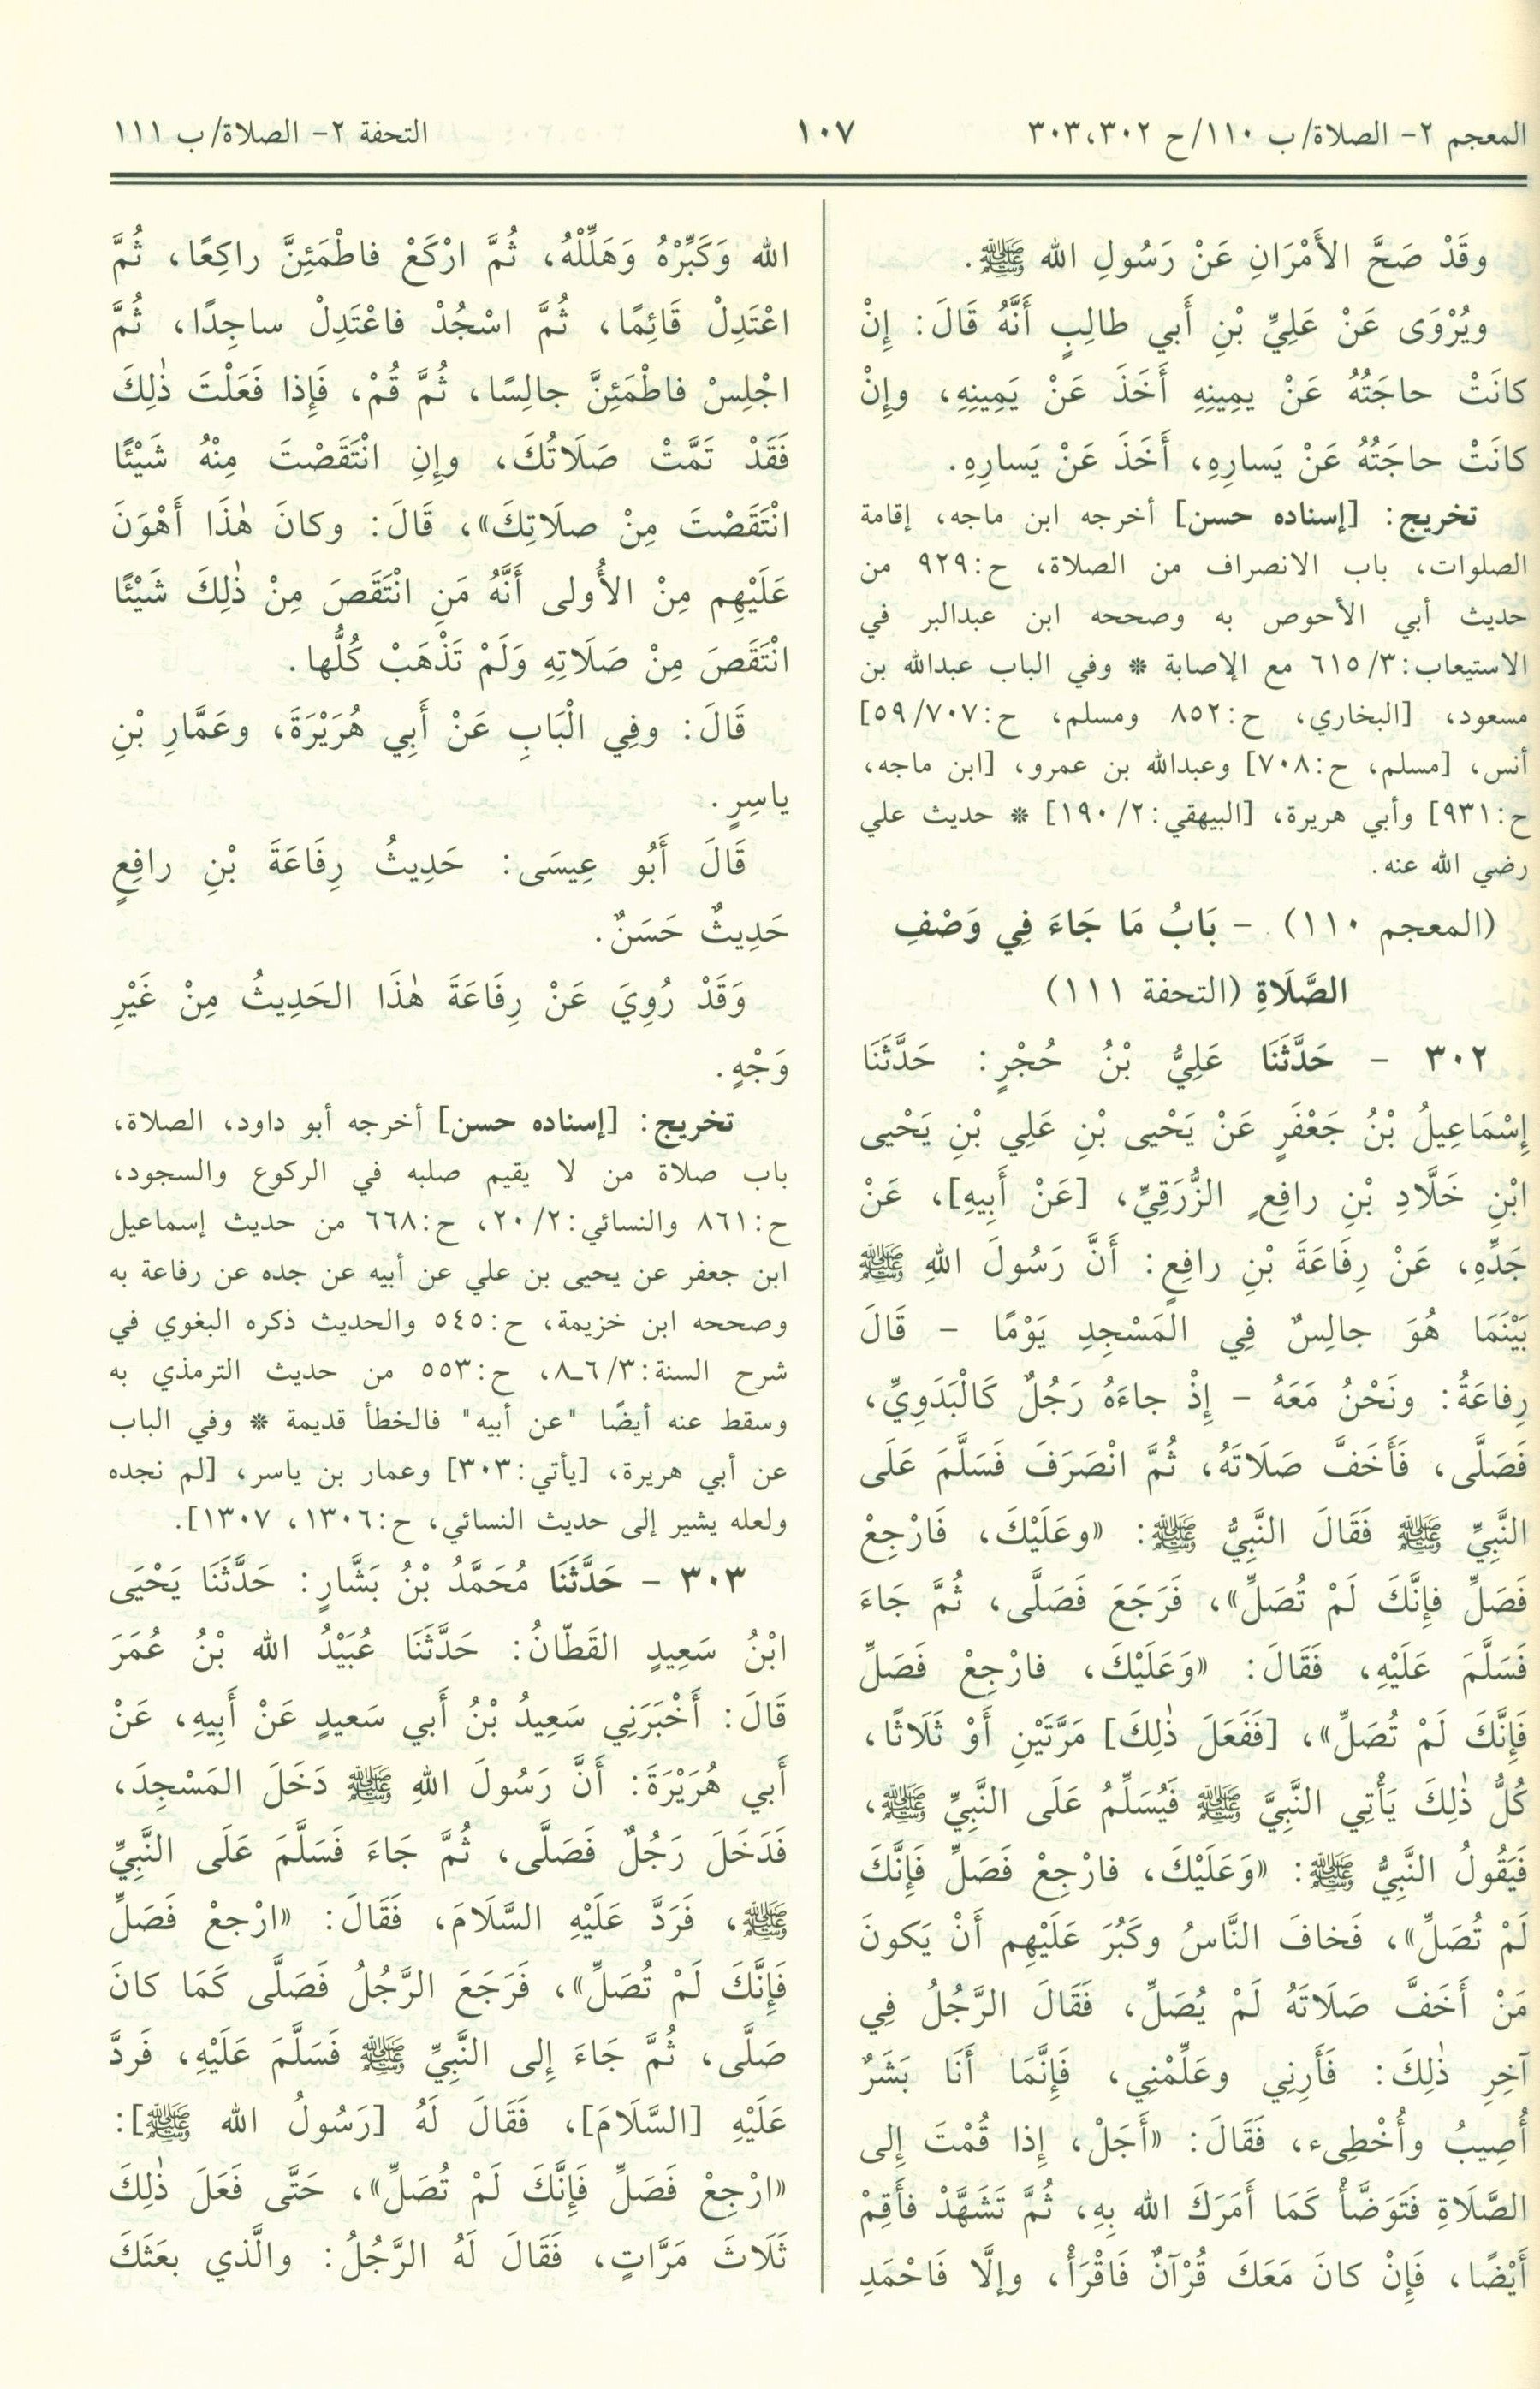 المعجم ٢- الصلاة/ ب ١١٠/ ح ٣٠٢،٣٠٣
١٠٧
التحفة ٢- الصلاة/ ب ١١١
وقَدْ صَحَّ الأَمْرَانِ عَنْ رَسُولِ الله ﷺ.
ويُرْوَى عَنْ عَلِيِّ بْنِ أَبي طالِبٍ أَنَّهُ قَالَ: إِنْ
كانَتْ حاجَتُهُ عَنْ يمِينِهِ أَخَذَ عَنْ يَمِينِهِ، وإِنْ
كانَتْ حاجَتُهُ عَنْ يَسارِهِ، أَخَذَ عَنْ يَسارِهِ.
تخريج: [إسناده حسن] أخرجه ابن ماجه، إقامة
الصلوات، باب الانصراف من الصلاة، ح:٩٢٩ من
حديث أبي الأحوص به وصححه ابن عبدالبر في
الاستيعاب:٣/ ٦١٥ مع الإصابة * وفي الباب عبدالله بن
مسعود، [البخاري، ح:٨٥٢ ومسلم، ح:٧٠٧/ ٥٩]
أنس، [مسلم، ح:٧٠٨] وعبدالله بن عمرو، [ابن ماجه،
ح:٩٣١] وأبي هريرة، [البيهقي:٢/ ١٩٠] * حديث علي
رضي الله عنه.
(المعجم ١١٠) - بَابُ مَا جَاءَ فِي وَصْفِ
الصَّلَاةِ (التحفة ١١١)
٣٠٢ - حَدَّثَنَا عَلِيُّ بْنُ حُجْرٍ: حَدَّثَنَا
إِسْمَاعِيلُ بْنُ جَعْفَرٍ عَنْ يَحْيى بْنِ عَلِي بْنِ يَحْيى
ابْنِ خَلَّادِ بْنِ رافِعٍ الزُّرَقِيِّ، [عَنْ أَبِيهِ]، عَنْ
جَدِّهِ، عَنْ رِفَاعَةَ بْنِ رافِعٍ: أَنَّ رَسُولَ اللهِ ﷺ
بَيْنَمَا هُوَ جالِسٌ فِي المَسْجِدِ يَوْمًا - قَالَ
رِفاعَةُ: ونَحْنُ مَعَهُ - إِذْ جاءَهُ رَجُلٌ كَالْبَدَوِيِّ،
فَصَلَّى، فَأَخَفَّ صَلَاتَهُ، ثُمَّ انْصَرَفَ فَسَلَّمَ عَلَى
النَّبِيِّ ﷺ فَقَالَ النَّبِيُّ ﷺ: «وعَلَيْكَ، فَارْجِعْ
فَصَلِّ فإِنَّكَ لَمْ تُصَلِّ»، فَرَجَعَ فَصَلَّى، ثُمَّ جَاءَ
فَسَلَّمَ عَلَيْهِ، فَقَالَ: «وَعَلَيْكَ، فارْجِعْ فَصَلِّ
فَإِنَّكَ لَمْ تُصَلِّ»، [فَفَعَلَ ذٰلِكَ] مَرَّتَيْنِ أَوْ ثَلَاثًا،
كُلُّ ذٰلِكَ يَأْتِي النَّبِيَّ ﷺ فَيُسَلِّمُ عَلَى النَّبِيِّ ﷺ،
فَيَقُولُ النَّبِيُّ ﷺ: «وَعَلَيْكَ، فارْجِعْ فَصَلِّ فَإِنَّكَ
لَمْ تُصَلِّ»، فَخافَ النَّاسُ وكَبُرَ عَلَيْهِم أَنْ يَكونَ
مَنْ أَخَفَّ صَلَاتَهُ لَمْ يُصَلِّ، فَقَالَ الرَّجُلُ فِي
آخِرِ ذٰلِكَ: فَأَرِنِي وعَلِّمْنِي، فَإِنَّمَا أَنَا بَشَرٌ
أُصِيبُ وأُخْطِىء، فَقَالَ: «أَجَلْ، إِذا قُمْتَ إِلى
الصَّلَاةِ فَتَوَضَّأْ كَمَا أَمَرَكَ الله بِهِ، ثُمَّ تَشَهَّدْ فأَقِمْ
أَيْضًا، فَإِنْ كانَ مَعَكَ قُرْآنٌ فَاقْرَأْ، وإلَّا فَاحْمَدِ
الله وَكَبِّرْهُ وَهَلِّلْهُ، ثُمَّ ارْكَعْ فاطْمَئِنَّ راكِعًا، ثُمَّ
اعْتَدِلْ قَائِمًا، ثُمَّ اسْجُدْ فاعْتَدِلْ ساجِدًا، ثُمَّ
اجْلِسْ فاطْمَئِنَّ جالِسًا، ثُمَّ قُمْ، فَإِذا فَعَلْتَ ذٰلِكَ
فَقَدْ تَمَّتْ صَلَاتُكَ، وإِنِ انْتَقَصْتَ مِنْهُ شَيْئًا
انْتَقَصْتَ مِنْ صلَاتِكَ»، قَالَ: وكانَ هٰذَا أَهْوَنَ
عَلَيْهِم مِنْ الأُولى أَنَّهُ مَنِ انْتَقَصَ مِنْ ذٰلِكَ شَيْئًا
انْتَقَصَ مِنْ صَلَاتِهِ وَلَمْ تَذْهَبْ كُلُّها.
قَالَ: وفِي الْبَابِ عَنْ أَبِي هُرَيْرَةَ، وعَمَّارِ بْنِ
ياسِرٍ.
قَالَ أَبُو عِيسَى: حَدِيثُ رِفَاعَةَ بْنِ رافِعٍ
حَدِيثٌ حَسَنٌ.
وَقَدْ رُوِيَ عَنْ رِفَاعَةَ هٰذَا الحَدِيثُ مِنْ غَيْرِ
وَجْهٍ.
تخريج: [إسناده حسن] أخرجه أبو داود، الصلاة،
باب صلاة من لا يقيم صلبه في الركوع والسجود،
ح:٨٦١ والنسائي:٢/ ٢٠، ح:٦٦٨ من حديث إسماعيل
ابن جعفر عن يحيى بن علي عن أبيه عن جده عن رفاعة به
وصححه ابن خزيمة، ح:٥٤٥ والحديث ذكره البغوي في
شرح السنة:٣/ ٦ـ٨، ح:٥٥٣ من حديث الترمذي به
وسقط عنه أيضًا "عن أبيه" فالخطأ قديمة * وفي الباب
عن أبي هريرة، [يأتي:٣٠٣] وعمار بن ياسر، [لم نجده
ولعله يشير إلى حديث النسائي، ح:١٣٠٦، ١٣٠٧].
٣٠٣ - حَدَّثَنَا مُحَمَّدُ بْنُ بَشَّارٍ: حَدَّثَنَا يَحْيَى
ابْنُ سَعِيدٍ القَطّانُ: حَدَّثَنَا عُبَيْدُ الله بْنُ عُمَرَ
قَالَ: أَخْبَرَنِي سَعِيدُ بْنُ أَبي سَعيدٍ عَنْ أَبِيهِ، عَنْ
أَبي هُرَيْرَةَ: أَنَّ رَسُولَ اللهِ ﷺ دَخَلَ المَسْجِدَ،
فَدَخَلَ رَجُلٌ فَصَلَّى، ثُمَّ جَاءَ فَسَلَّمَ عَلَى النَّبِيِّ
ﷺ، فَرَدَّ عَلَيْهِ السَّلَامَ، فَقَالَ: «ارْجعْ فَصَلِّ
فَإِنَّكَ لَمْ تُصَلِّ»، فَرَجَعَ الرَّجُلُ فَصَلَّى كَمَا كانَ
صَلَّى، ثُمَّ جَاءَ إِلى النَّبِيِّ ﷺ فَسَلَّمَ عَلَيْهِ، فَردَّ
عَلَيْهِ [السَّلَامَ]، فَقَالَ لَهُ [رَسُولُ الله ﷺ]:
«ارْجِعْ فَصَلِّ فَإِنَّكَ لَمْ تُصَلِّ»، حَتَّى فَعَلَ ذٰلِكَ
ثَلَاثَ مَرَّاتٍ، فَقَالَ لَهُ الرَّجُلُ: والَّذي بعَثَكَ